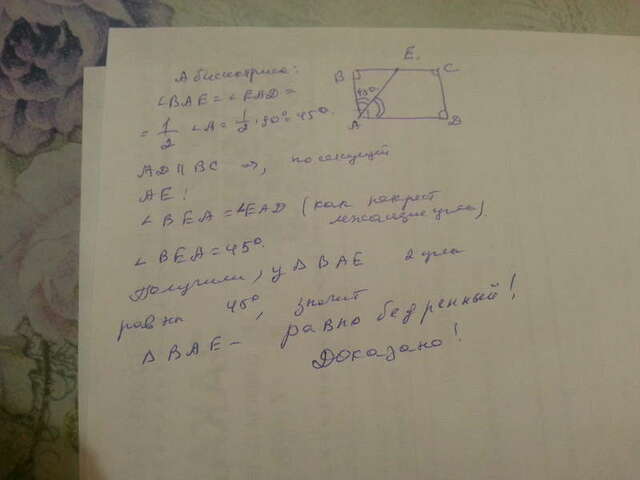 A биссектриса:
∠BAE = ∠EAD =
= 1/2 ∠A = 1/2 · 90° = 45°.
AD || BC ⇒, по секущей
AE:
∠BEA = ∠EAD (как накрест
лежащие углы).
∠BEA = 45°.
Получили, у ΔBAE 2 угла
равны 45°, значит
ΔBAE – равнобедренный!
Доказано!
E
B
C
45°
A
D